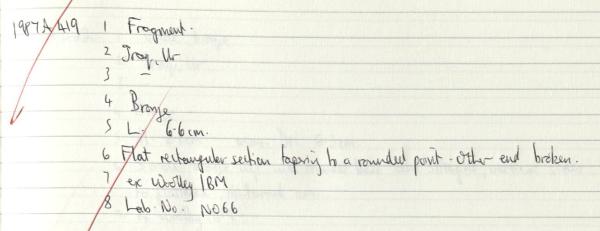 1987A419 1 Fragment.
2 Iraq, Ur
3 –
4 Bronze
5 L. 6.6cm.
6 Flat rectangular section tapering to a rounded point. Other end broken.
7 ex Woolley/BM
8 Lab. No. N066